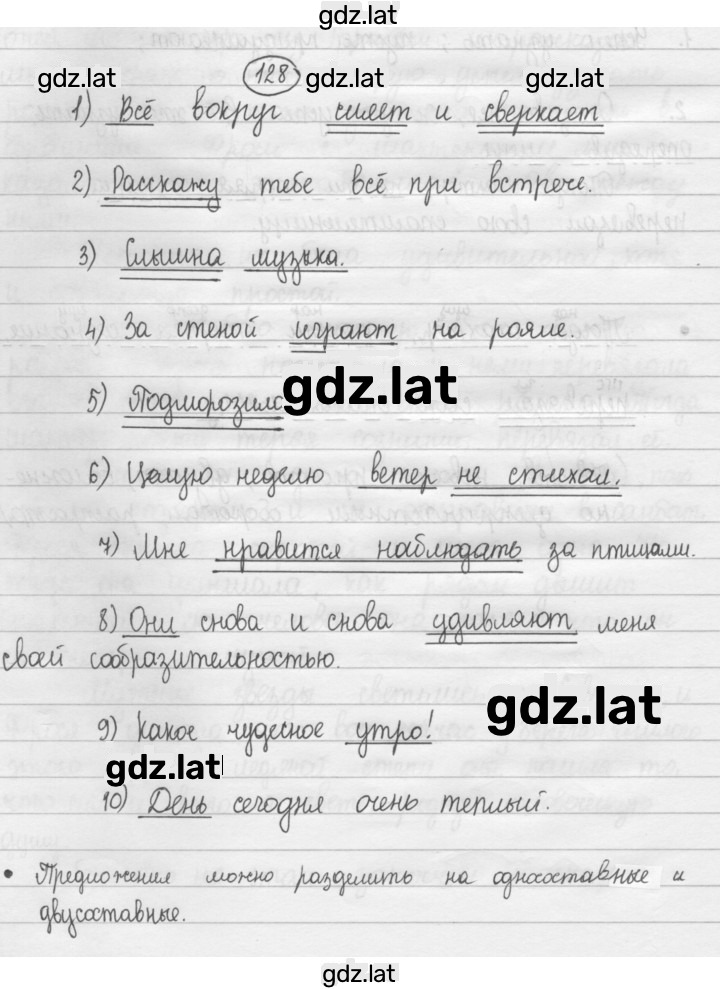 gdz.lat
gdz.lat
128
gdz.lat
1) Всё вокруг сияет и сверкает
2) Расскажу тебе всё при встрече.
3) Слышна музыка.
4) За стеной играют на рояле.
5) Подморозило
gdz.lat
6) Целую неделю ветер не стихал.
7) Мне нравится наблюдать за птицами.
8) Они снова и снова удивляют меня
своей сообразительностью.
gdz.lat
9) Какое чудесное утро!
gdz.lat
10) День сегодня очень теплый.
• Предложения можно разделить на односоставные и
двусоставные.
gdz.lat